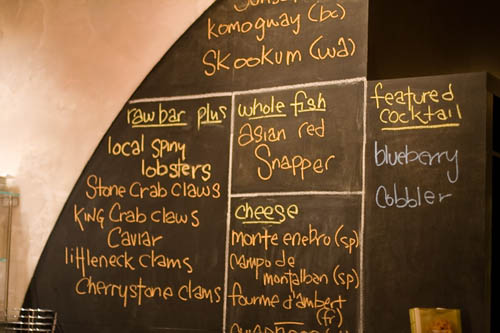 komogway (bc)
Skookum (wa)
raw bar plus
local spiny
lobsters
Stone Crab claws
King Crab claws
Caviar
littleneck clams
Cherrystone clams
whole fish
asian red
Snapper
cheese
monte enebro (sp)
campo de
montalban (sp)
fourme d'ambert
(fr)
featured
cocktail
blueberry
cobbler